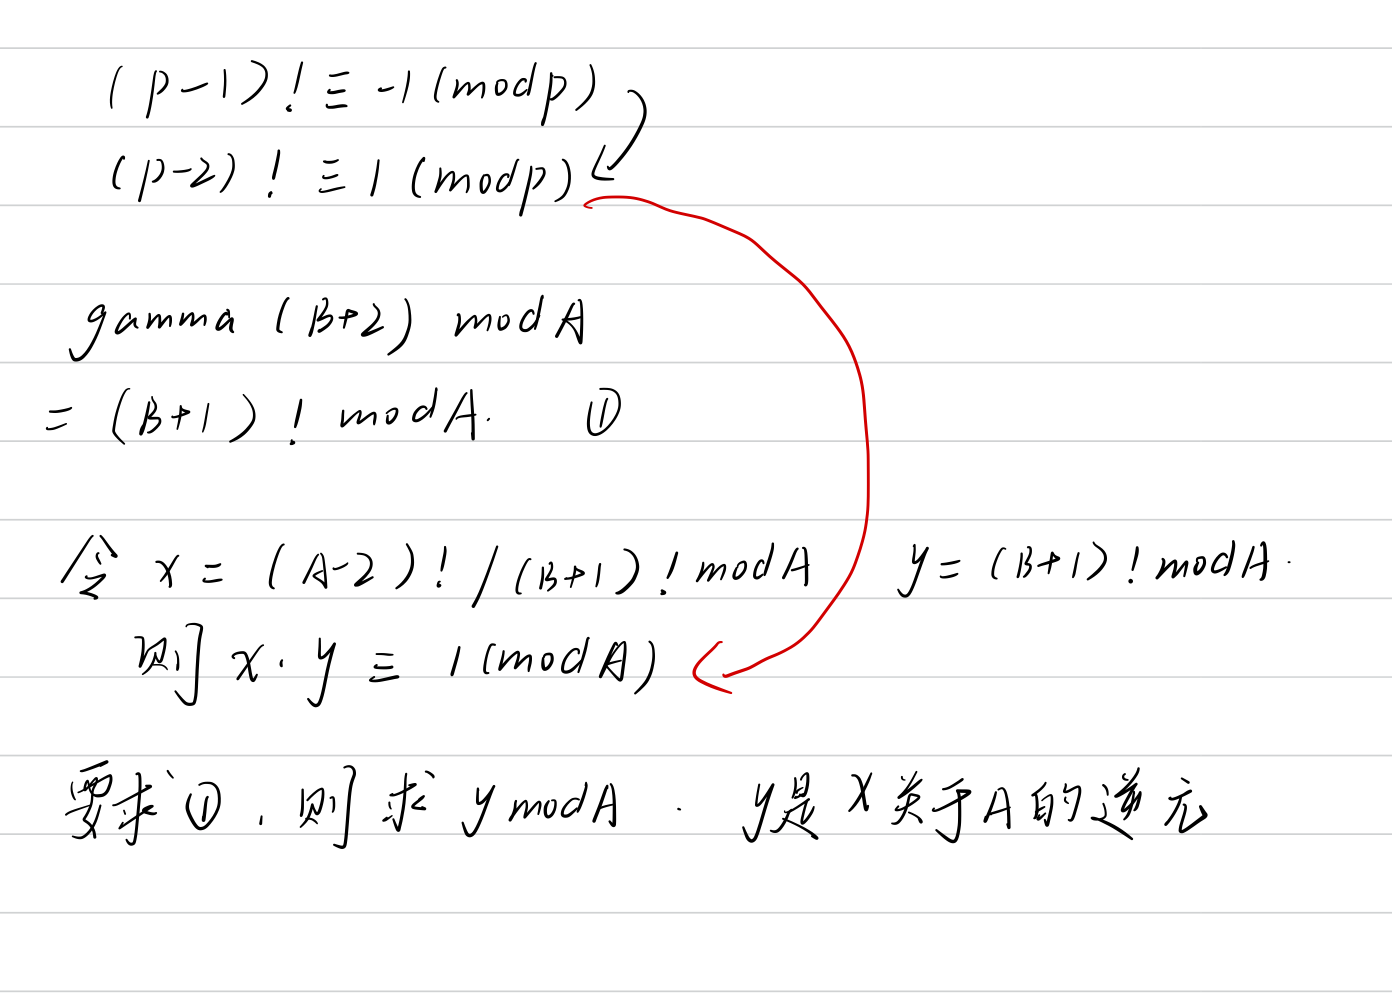 (p-1)! ≡ -1 (mod p)
(p-2)! ≡ 1 (mod p)
gamma (B+2) mod A
= (B+1)! mod A. ①
令 x = (A-2)! / (B+1)! mod A y = (B+1)! mod A.
则 x · y ≡ 1 (mod A)
要求①, 则求 y mod A. y是x关于A的逆元